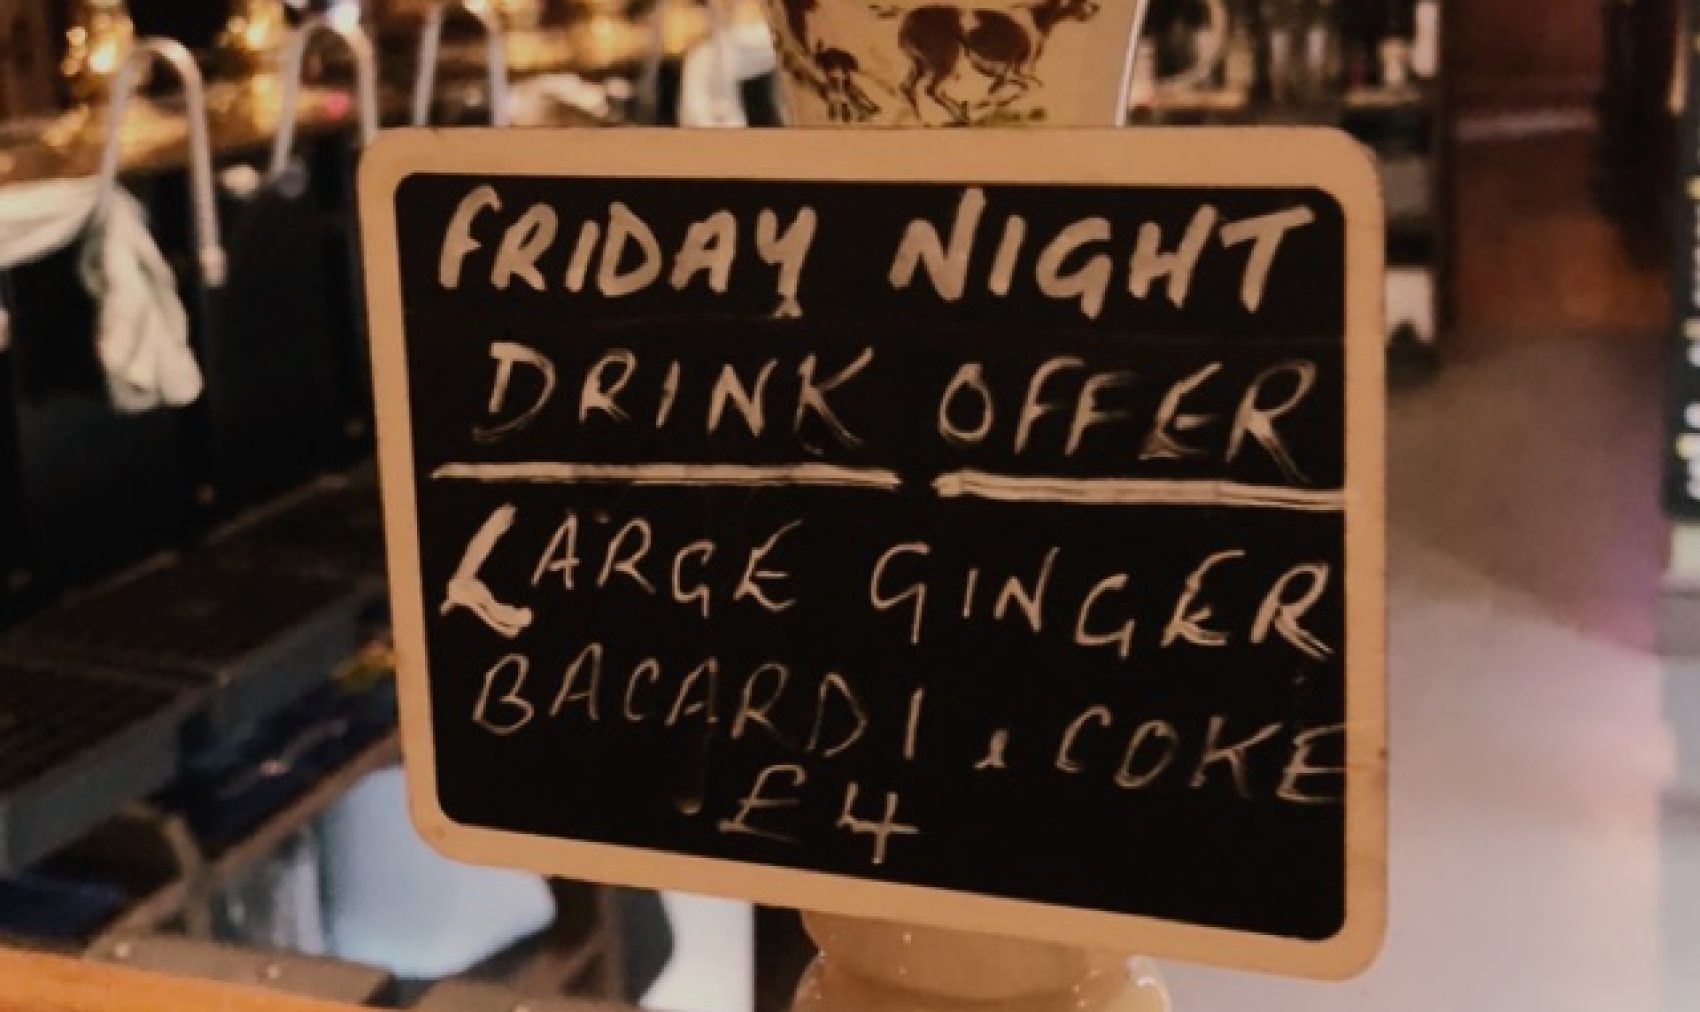 FRIDAY NIGHT
DRINK OFFER
LARGE GINGER
BACARDI & COKE
£4